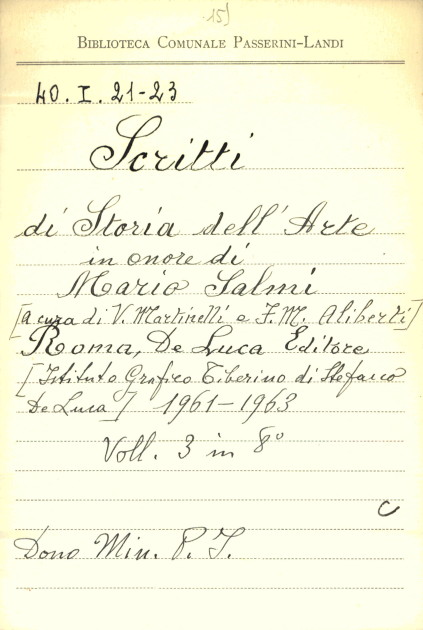 15)
BIBLIOTECA COMUNALE PASSERINI-LANDI
40. I. 21-23
Scritti
di Storia dell'Arte
in onore di
Mario Salmi
[a cura di V. Martinelli e F. M. Aliberti]
Roma, De Luca Editore
[Istituto Grafico Tiberino di Stefano
De Luca] 1961-1963
Voll. 3 in 8°
C
Dono Min. P. I.